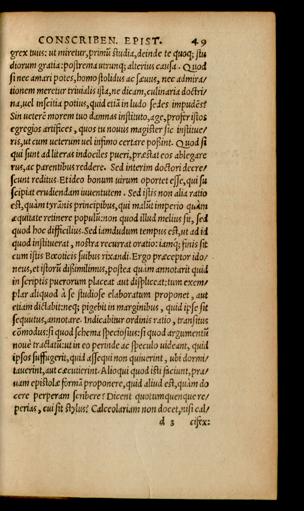 CONSCRIBEN. EPIST. 49
grex tuus: ut miretur, primũ studia, deinde te quoq; stu
diorum gratia: postremã utrunq; alterius causa. Quod
si nec amari potes, homo stolidus ac sæuus, nec admira/
tionem meretur triuialis ista, ne dicam, culinaria doctri/
na, uel inscitia potius, quid etiã in ludo sedes impudẽs?
Sin ueterẽ morem tuo damnas instituto, age, profer istos
egregios artifices, quos tu nouus magister sic institue/
ris, ut cum ueterum uel infimo certare possint. Quod si
qui sunt ad literas indociles pueri, præstat eos ablegare
rus, ac parentibus reddere. Sed interim doctori decre/
scunt reditus. Et ideo bonum uirum oportet esse, qui su
scipiat erudiendam iuuentutem. Sed istis non alia ratio
est, quàm tyrãnis principibus, qui malũt imperio quàm
æquitate retinere populũ: non quod illud melius sit, sed
quod hoc difficilius. Sed iamdudum tempus est, ut ad id
quod instituerat, nostra recurrat oratio: iamq; finis sit
cum istis Bœoticis suibus rixandi. Ergo præceptor ido/
neus, et istorũ dissimilimus, postea quàm annotarit quid
in scriptis puerorum placeat aut displiceat: tum exem/
plar aliquod à se studiose elaboratum proponet, aut
etiam dictabit: neq; pigebit in marginibus, quid ipse sit
sequutus, annotare. Indicabitur ordinis ratio, transitus
cõmodus: si quod schema speciosius: si quod argumentũ
nouè tractatũ: ut in eo perinde ac speculo uideant, quid
ipsos suffugerit, quid assequi non quiuerint, ubi dormi/
tauerint, aut cæcutierint. Alioqui quod isti faciunt, præ/
uam epistolæ formã proponere, quid aliud est, quàm do
cere perperam scribere? Dicent quotumquenque re/
perias, cui sit stylus? Calceolariam non docet, nisi cal/
d 3 cifex: